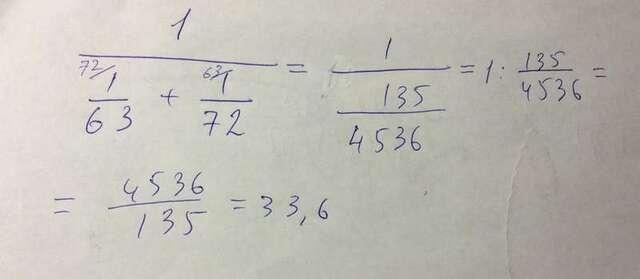 1/(⁷²⁄1/63 + ⁶³⁄1/72) = 1/(135/4536) = 1 : 135/4536 =
= 4536/135 = 33,6